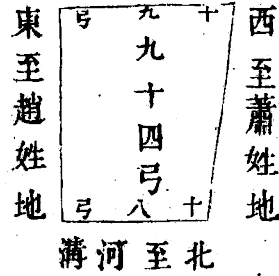 西至蕭姓地
十九弓
九十四弓
十八弓
東至趙姓地
北至河溝